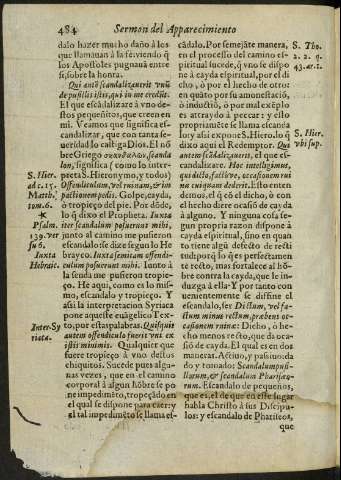 484 Sermon del Apparecimiento
dalo hazer mucho daño á los
que llamauan a sã seruiendo q̃
los Apostoles pugnauã entre
si, sobre la honra.
Qui autẽ scandalizauerit vnũ
de pusillis istis, qui in me credũt.
El que escãdalizare à vno des-
tos pequeñitos, que creen en
mi. Veamos que significa es-
candalizar, que con tanta se-
ueridad lo castiga Dios. El nõ
bre Griego σκανδαλον, scanda
lon, significa (como lo inter-
S. Hier.
ad c. 15.
Matth.
tom. 6.
preta S. Hieronymo, y todos)
Offendiculum, vel ruinam, & im
pactionem pedis. Golpe, cayda,
ò tropieço del pie. Por dõde,
Psalm.
139. ver
su 6.
lo q̃ dixo el Propheta. Iuxta
iter scandalum posuerunt mihi,
junto al camino me pusieron
escandalo se dize segun lo He
Iuxta
Hebraic.
brayco. Iuxta semitam offendi-
culum posuerunt mihi. Iunto à
la senda me pusieron tropie-
ço. He aqui, como es lo mis-
mo, escandalo y tropieço. Y
assi la interpretacion Syriaca
pone aqueste euãgelico Tex-
Inter. Sy
riaca.
to, por estas palabras. Quisquis
autem offendiculo fuerit vni ex
istis minimis. Qualquier que
fuere tropieço à vno destos
chiquitos. Sucede pues algu-
nas vezes, que en el camino
corporal à algun hõbre se po
ne impedimẽto, tropeçãdo en
el qual se dispone para caer: y
al tal impedimẽto se llama es-
cãdalo. Por semejãte manera,
S. Tho.
2. 2. q.
43. ar. 1.
en el processo del camino es-
piritual sucede, q̃ vno se dispo
ne à cayda espiritual, por el di
cho, ò por el hecho de otro:
en quanto por su amonestació,
ò inductiõ, ò por mal exẽplo
es attraydo à peccar: y esto
propriamẽte se llama escãda
lo: y assi expone S. Hiero. lo q̃
S. Hier.
vbi sup.
dixo aqui el Redemptor. Qui
autem scãdalizauerit, el que es-
candalizare. Hoc intelligimus,
qui dicto, factóve, occasionem rui
næ cuiquam dederit. Esto enten
demos, el q̃ cõ el dicho, ò con
el hecho diere ocasió de cayda
à alguno. Y ninguna cosa dis-
pone à cayda propria razon
espiritual, sino en quan
to tiene algũ defecto de recti
tud: porq̃ lo que es perfectamen
te recto, mas fortalece al hõ-
bre contra la cayda, que le in-
duzga à ella: Y por tanto con
uenientemente se diffine el
escandalo, ser Dictum, vel fa-
ctum minus rectum, præbens oc-
casionem ruinæ: Dicho, ò he-
cho menos recto, que da oca-
siõ de cayda. El qual es en dos
maneras. Actiuo, y passiuo: da
do y tomado: Scandalum pusil-
llorum, & scandalum Pharisæo-
rum. Escandalo de pequeños,
que es, el de que en este lugar
habla Christo à sus Discipu-
los: y escandalo de Phariseos,
que